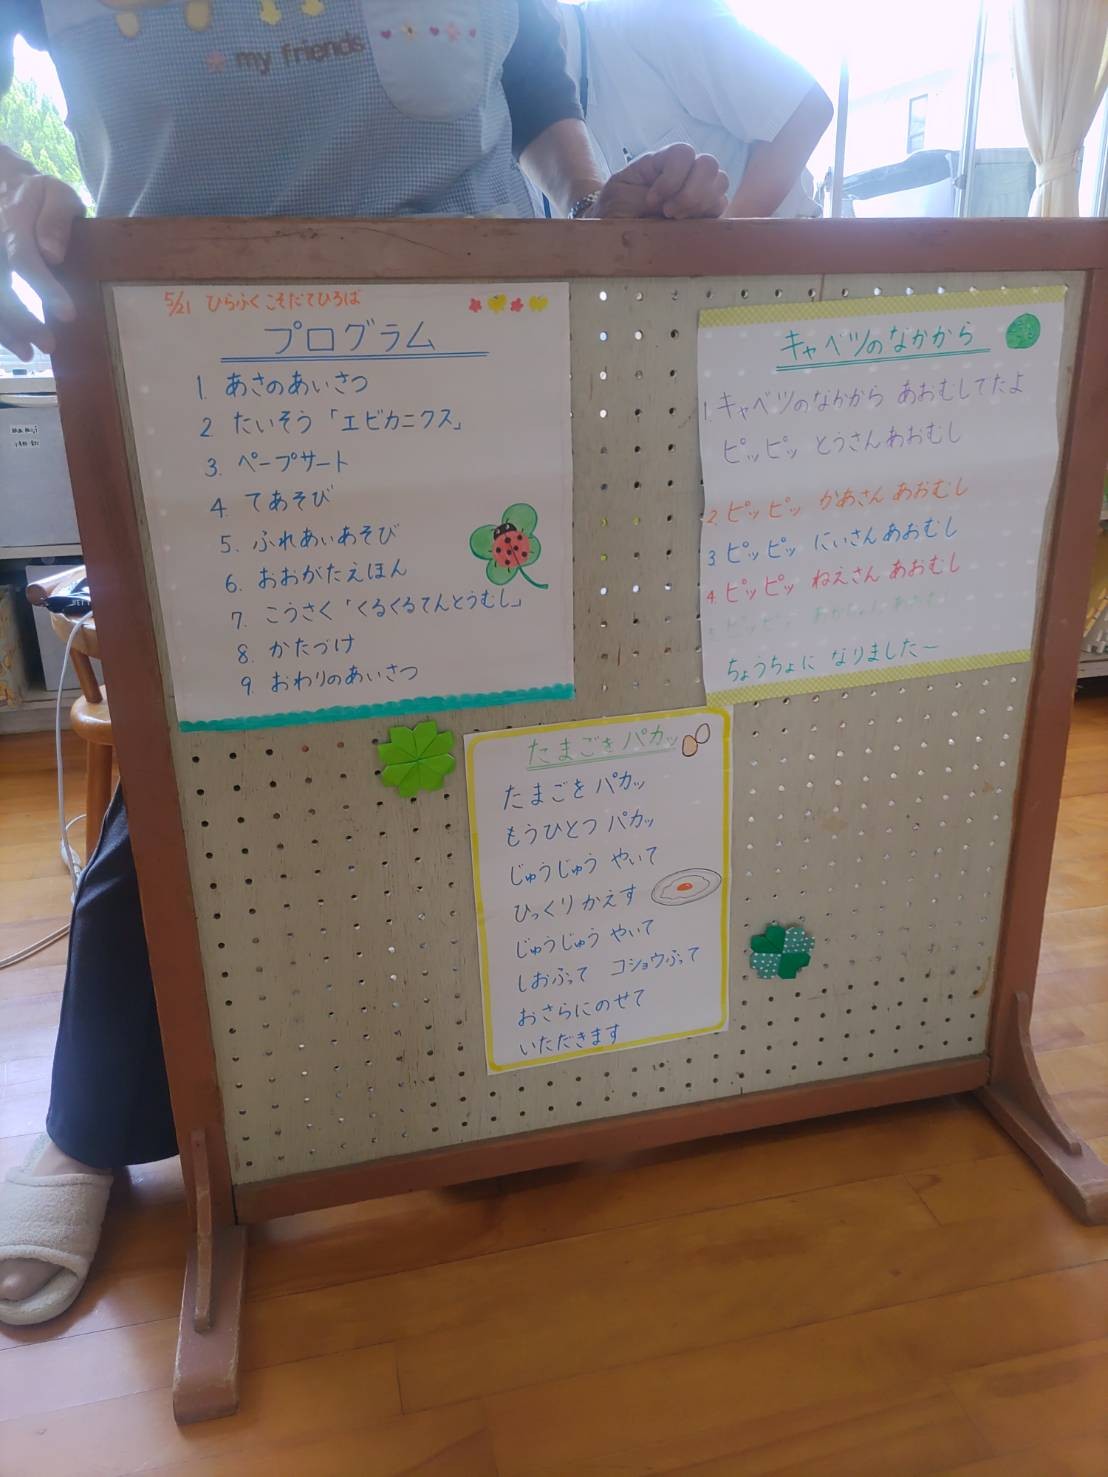 my friends
5/21 ひらふく こそだてひろば
プログラム
1. あさのあいさつ
2. たいそう「エビカニクス」
3. ペープサート
4. てあそび
5. ふれあいあそび
6. おおがたえほん
7. こうさく「くるくるてんとうむし」
8. かたづけ
9. おわりのあいさつ
キャベツのなかから
1. キャベツのなかから あおむしでたよ
ピッピッ とうさんあおむし
2. ピッピッ かあさん あおむし
3 ピッピッ にいさんあおむし
4. ピッピッ ねえさん あおむし
ちょうちょに なりました〜
たまごをパカッ
たまごを パカッ
もうひとつ パカッ
じゅうじゅう やいて
ひっくりかえす
じゅうじゅう やいて
しおふって コショウふって
おさらにのせて
いただきます